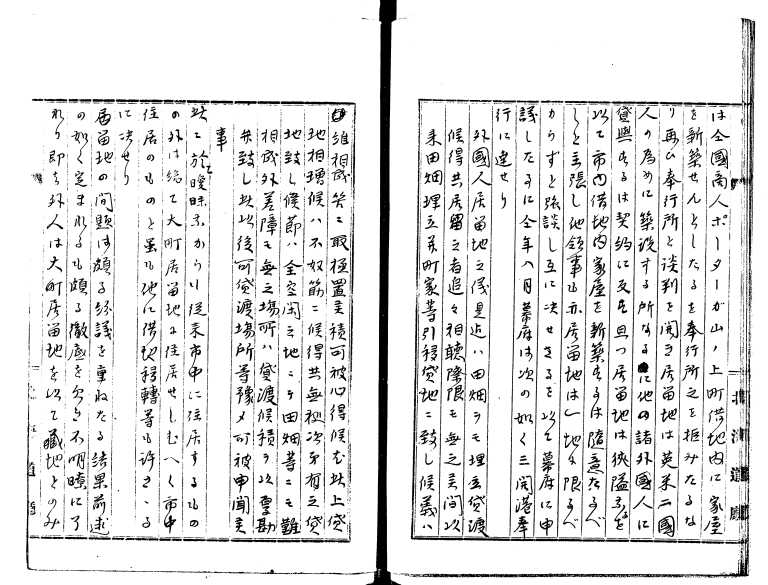 は仝國商人ポーターが山ノ上町借地内に家屋
を新築せんとしたるを奉行所之を拒みたるよ
り再ひ奉行所と談判を開き居留地は英米二國
人の為めに築設する所なるに他の諸外國人に
貸與するは契約に反し且つ居留地は狹隘なるを
以て市内借地内家屋を新築するは隨意たるべ
しと主張し他領事も亦居留地は一地に限るべ
からずと論談し互に決せさるを以て幕府に申
議したるに仝年八月幕府は次の如く三開港奉
行に達せり
外國人居留地之儀是近ハ田畑ヲモ埋立貸渡
候得共居留之者追々相聽際限モ無之間以
来田畑埋立并町家等引移貸地ニ致し候義ハ
維相成矣ニ取極置積可被心得候尤此上貸
地相増候ハ不奴筋ニ候得共無據次第有之貸
地致し候節ハ全空閑之地ニテ田畑等ニモ難
相成外差障モ無之場所ハ貸渡候積ヲ以厚勘
弁致し此以後可貸渡場所等豫メ可被申聞矣
事
此に於て曖昧ながらも従来市中に住居するもの
の外は総て大町居留地に住居せしむへく市中
住居のものと雖も他に借地移轉等も許さゝる
に决せり
居留地の問題は頗る紛議を重ねたる結果前述
の如く定まれるも頗る徹底を欠き不明瞭に了
れり即ち外人は大町居留地を以て藏地とのみ
北海道廳